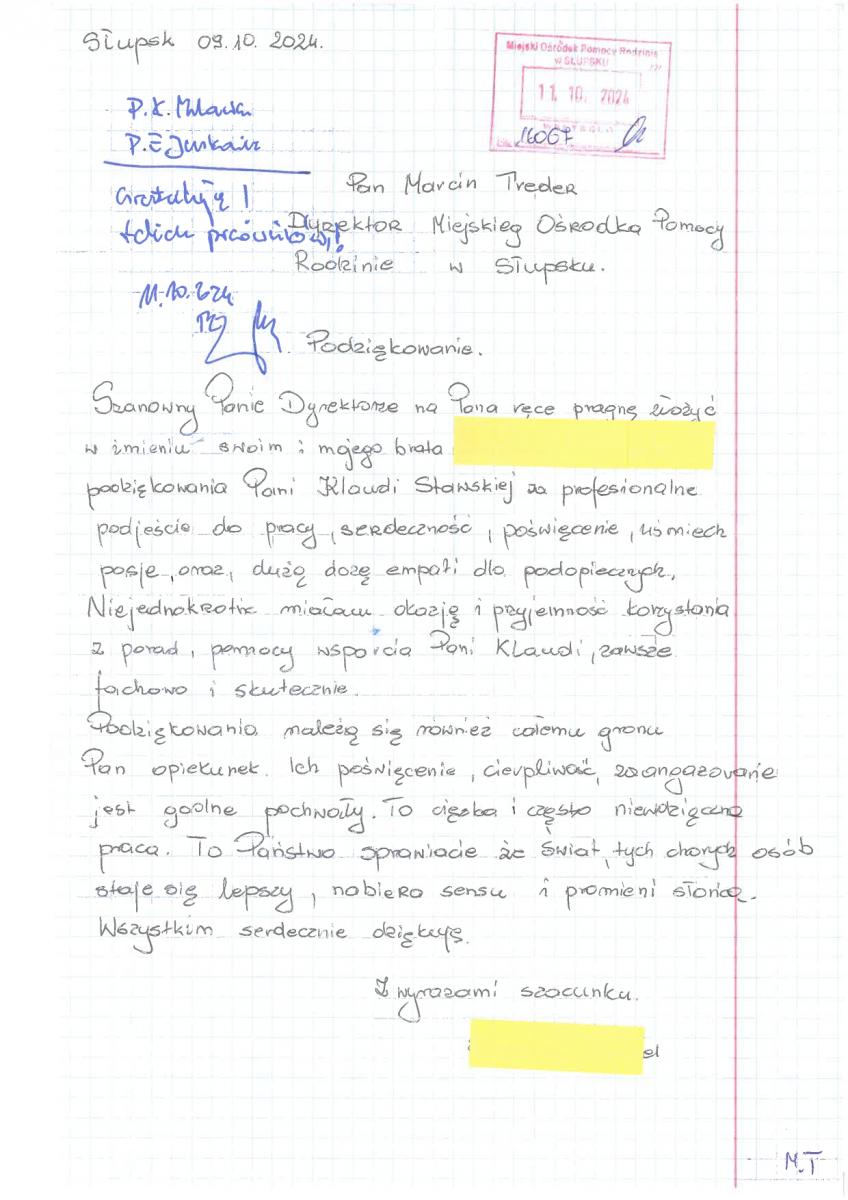 Słupsk 09.10.2024.
Miejski Ośrodek Pomocy Rodzinie
w SŁUPSKU
11. 10. 2024
16067
P.K.
P.E
Gratuluję!
takich pracowników!
11.10.2024
Pan Marcin Treder
Dyrektor Miejskieg Ośrodka Pomocy
Rodzinie w Słupsku.
Podziękowanie.
Szanowny Panie Dyrektorze na Pana ręce pragnę złożyć
w imieniu swoim i mojego brata
podziękowania Pani Klaudi Stawskiej za profesionalne
podjeście do pracy, serdeczność, poświęcenie, uśmiech
pasje, oraz, dużą dozę empati dla podopiecznych,
Niejednokrotnie miałam okazję i przyjemność korzystania
z porad, pomocy wsparcia Pani Klaudi, zawsze
fachowo i skutecznie.
Podziękowania należą się również całemu gronu
Pan opiekunek. Ich poświęcenie, cierpliwość, zaangazowanie
jest godne pochwały. To ciężka i często niewdzięczna
praca. To Państwo sprawiacie że świat, tych chorych osób
staje się lepszy, nabiera sensu i promieni słońca.
Wszystkim serdecznie dziękuję.
Z wyrazami szacunku.
el
M.T